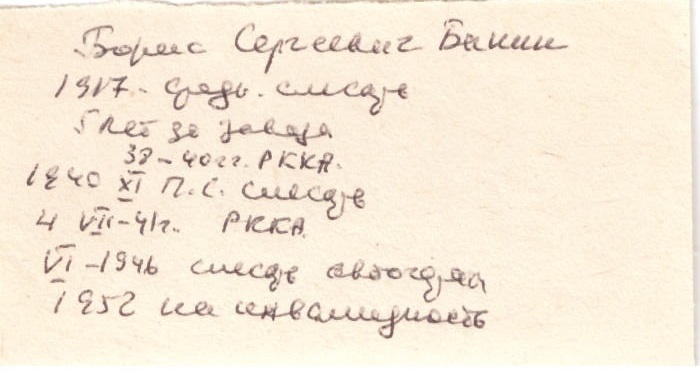 Борис Сергеевич Бикин
1917 - средн. слесарь
5 лет за завода
38-40 гг. РККА.
1940 XI П.С. слесарь
4 VII-41г. РККА
VI-1946 слесарь
I 1952 на инвалидность